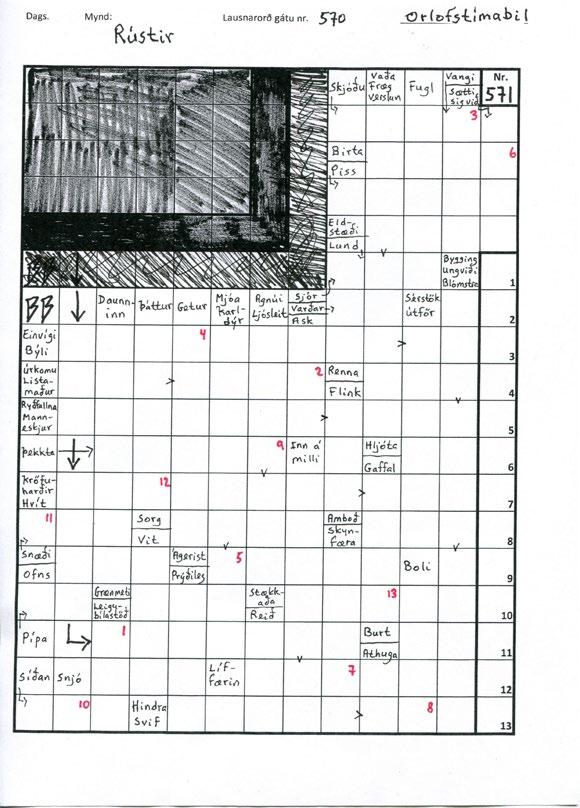 Dags. Mynd: Lausnarorð gátu nr. 570 Orlofstímabil
Rústir
Skjóðu
Vaða
Fræg
verslun
Fugl
Vangi
Sætti
sig við
Nr.
571
3
Birta
Piss
6
Eld-
stæði
Lund
Bygging
ungviði
Blómstra
1
BB
Daunn-
inn
Þáttur
Getur
Mjóa
Karl-
dýr
Agnúi
Ljósleit
Sjór
Varðar
Ask
Sérstök
útför
2
Einvígi
Býli
4
3
Úrkomu
Lista-
maður
2
Renna
Flink
4
Ryðfallna
Mann-
eskjur
5
Þekkta
9
Inn á
milli
Hljóta
Gaffal
6
Kröfu-
harðir
Hvít
12
7
11
Sorg
Vit
Amboð
Skyn-
færa
8
Snæði
Ofns
Ágerist
Prýðileg
5
Boli
9
Grænmeti
Leigu-
bílastöð
Stækk-
aða
Reið
13
10
Pípa
1
Burt
Athuga
11
Síðan
Snjó
Líf-
færin
7
12
10
Hindra
Svif
8
13